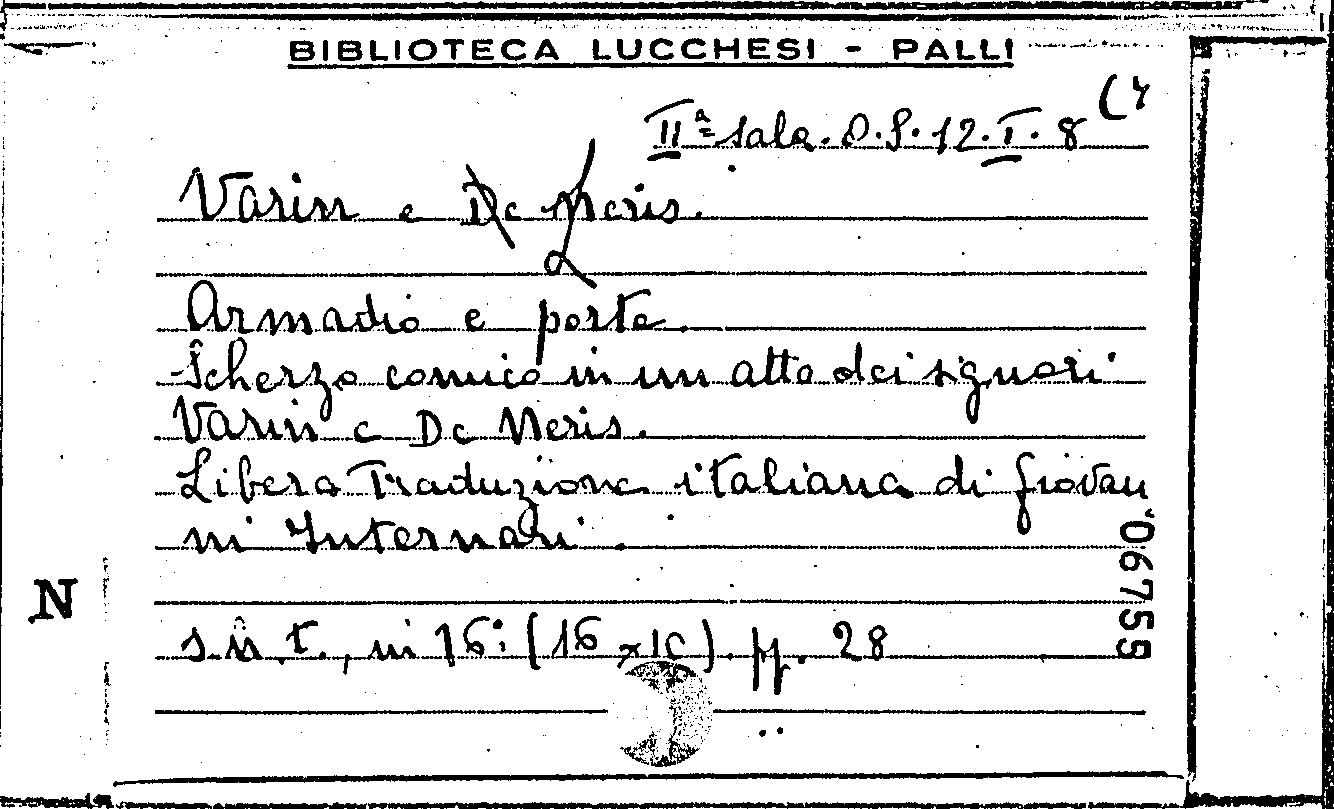 BIBLIOTECA LUCCHESI - PALLI
IIª sala. O.P. 12. I. 8 (4
Varin e De Neris.
Armadio e porte.
Scherzo comico in un atto dei signori
Varin e De Neris.
Libera Traduzione italiana di Giovan
ni Internari.
s.n.t., in 16º (16 x 10). pp. 28
N
06755